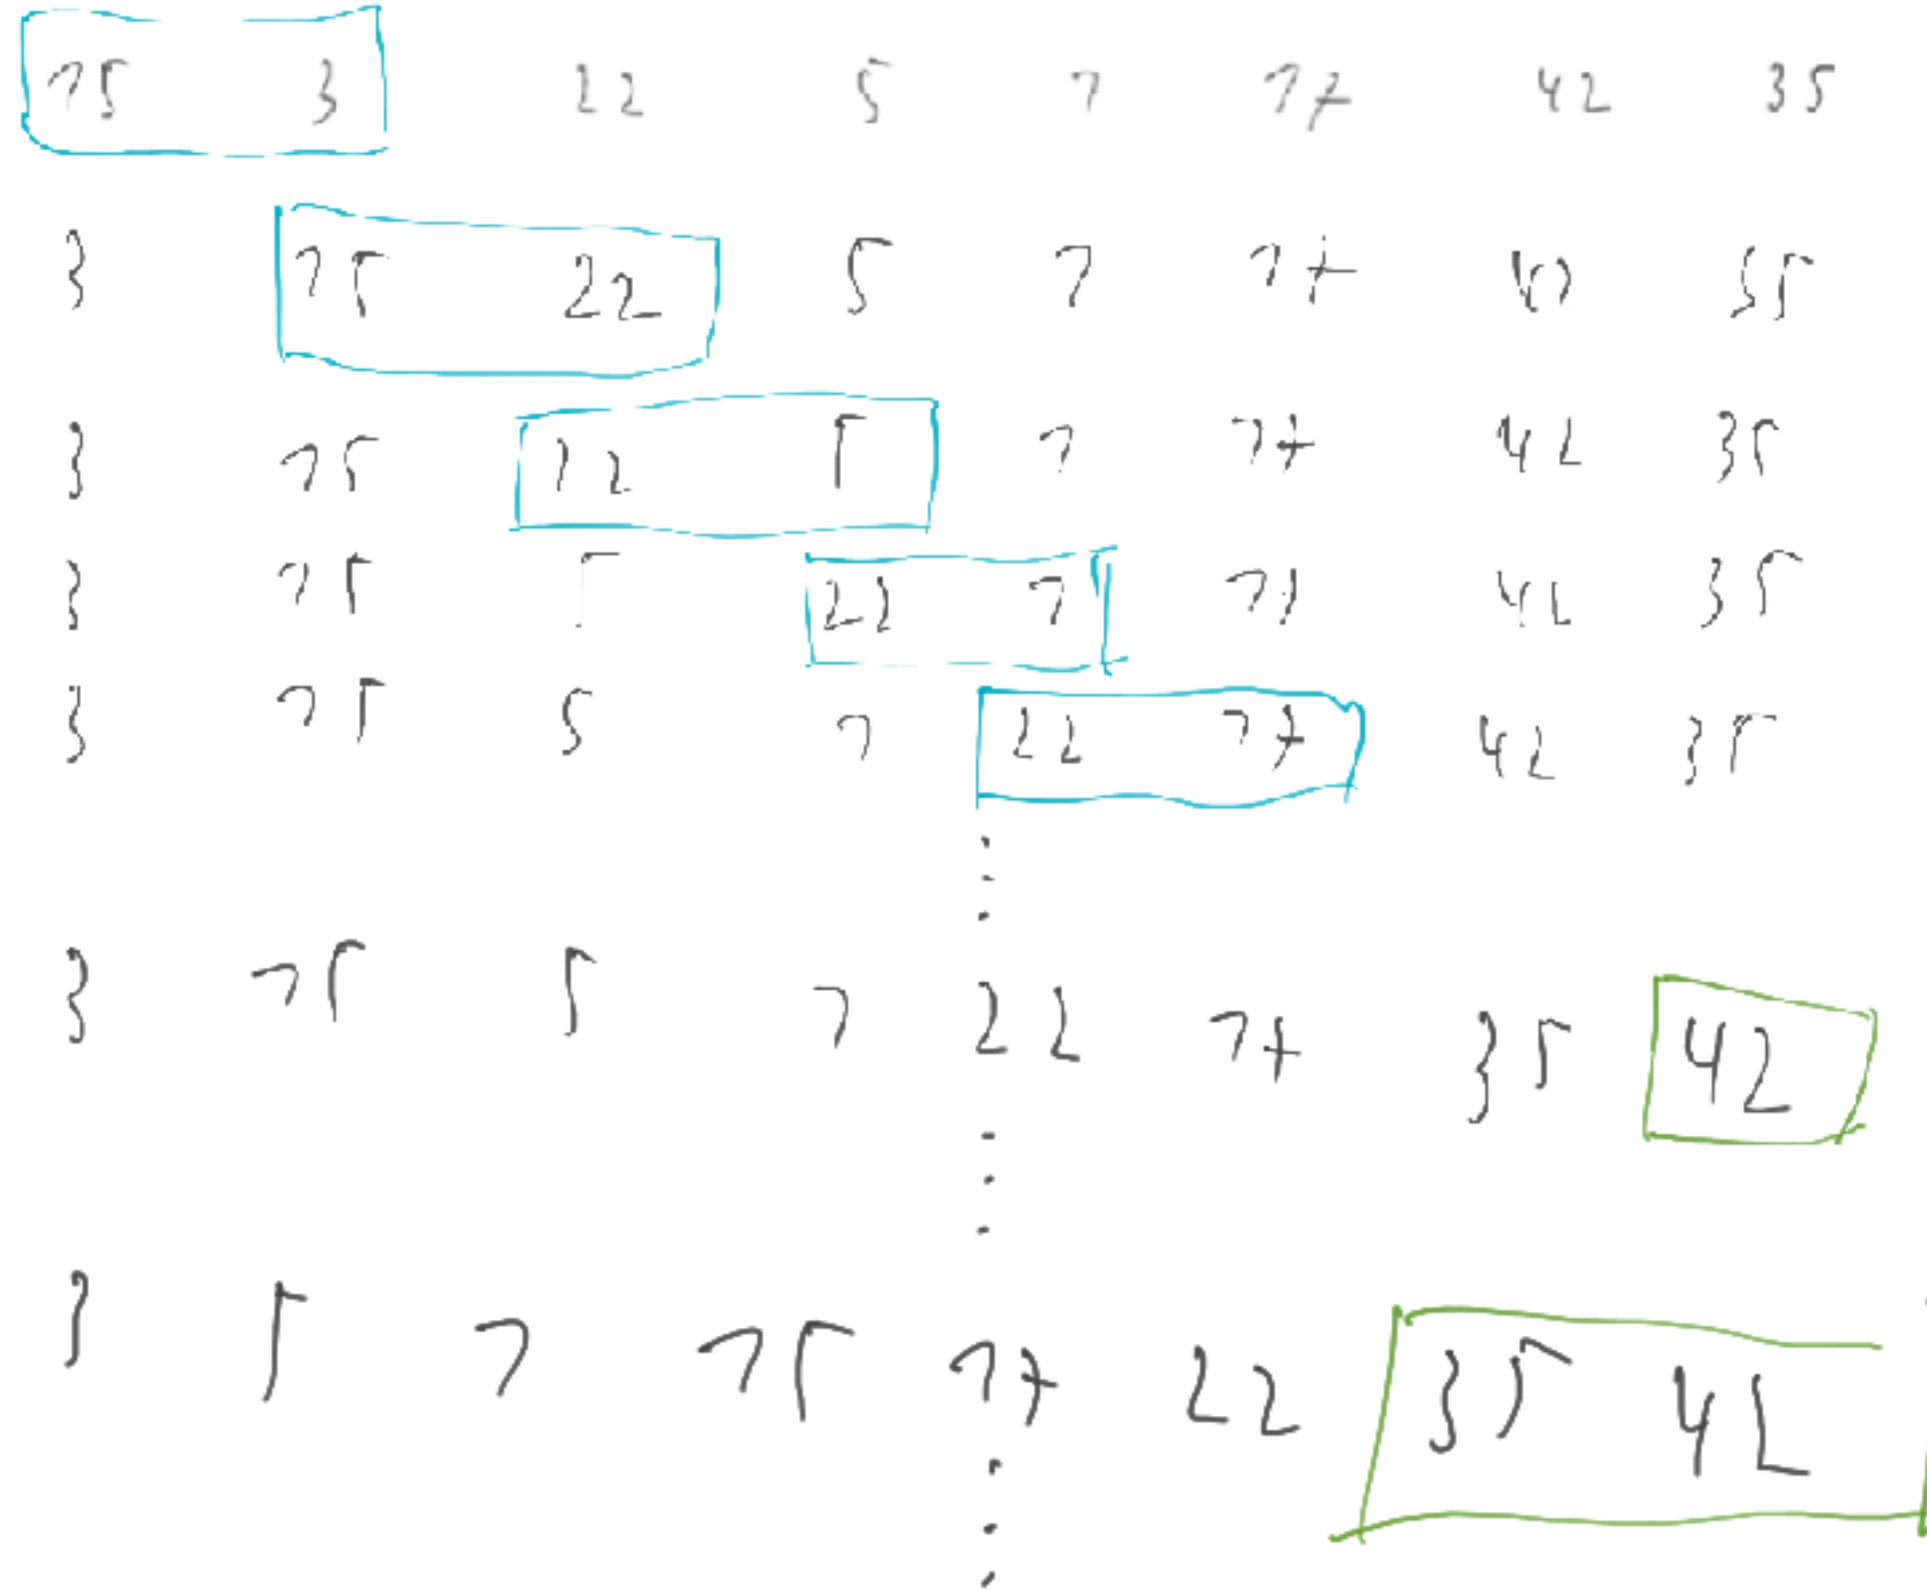 15 3 22 5 1 17 42 35
3 15 22 5 1 17 42 35
3 15 22 5 1 17 42 35
3 15 5 22 1 17 42 35
3 15 5 1 22 17 42 35
3 15 5 1 22 17 35 42
3 5 1 15 17 22 35 42